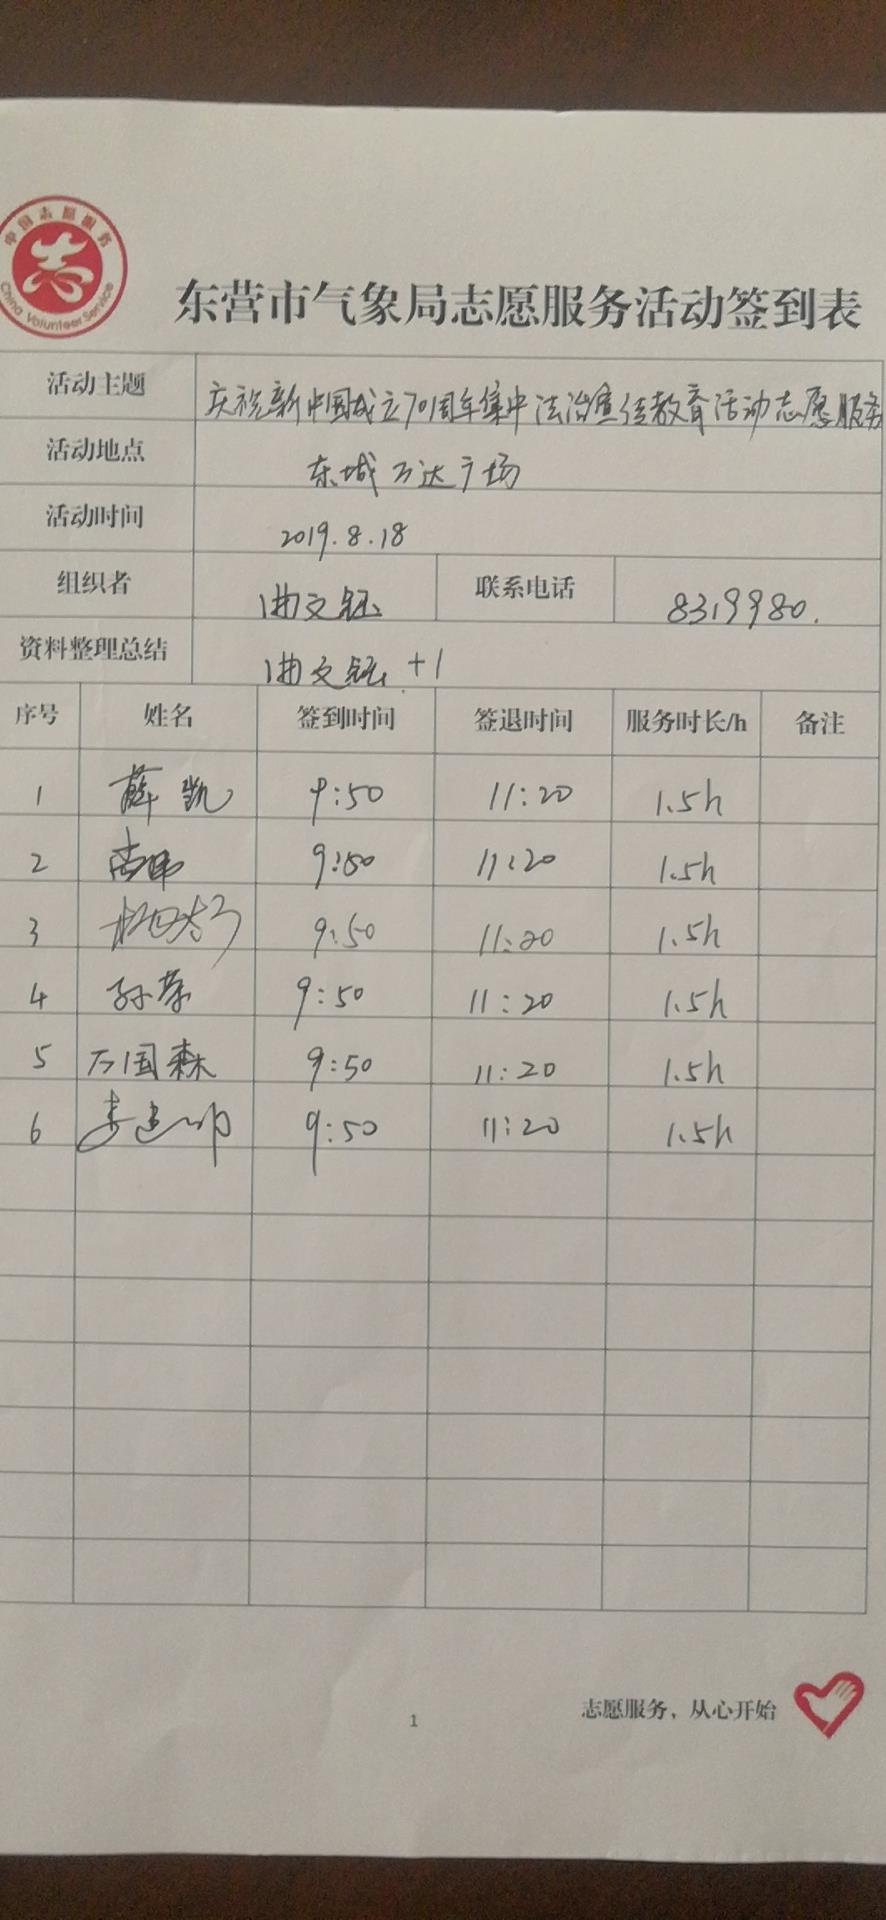 中国志愿服务
China Volunteer Service
东营市气象局志愿服务活动签到表
活动主题 庆祝新中国成立70周年集中法治宣传教育活动志愿服务
活动地点 东城万达广场
活动时间 2019.8.18
组织者 曲文钰 联系电话 8319980.
资料整理总结 曲文钰 +1
序号 姓名 签到时间 签退时间 服务时长/h 备注
1 薛凯 9:50 11:20 1.5h
2 9:50 11:20 1.5h
3 9:50 11:20 1.5h
4 孙荣 9:50 11:20 1.5h
5 万国森 9:50 11:20 1.5h
6 9:50 11:20 1.5h
志愿服务，从心开始
1